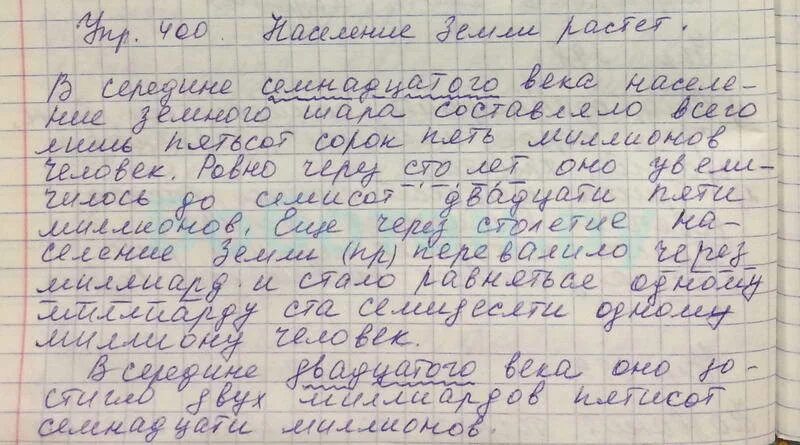 Упр. 400. Население Земли растет.
В середине семнадцатого века населе-
ние земного шара составляло всего
лишь пятьсот сорок пять миллионов
человек. Ровно через сто лет оно увели-
чилось до семисот двадцати пяти
миллионов. Еще через столетие на-
селение Земли (пр) перевалило через
миллиард и стало равняться одному
миллиарду ста семидесяти одному
миллиону человек.
В середине двадцатого века оно до-
стигло двух миллиардов пятисот
семнадцати миллионов.